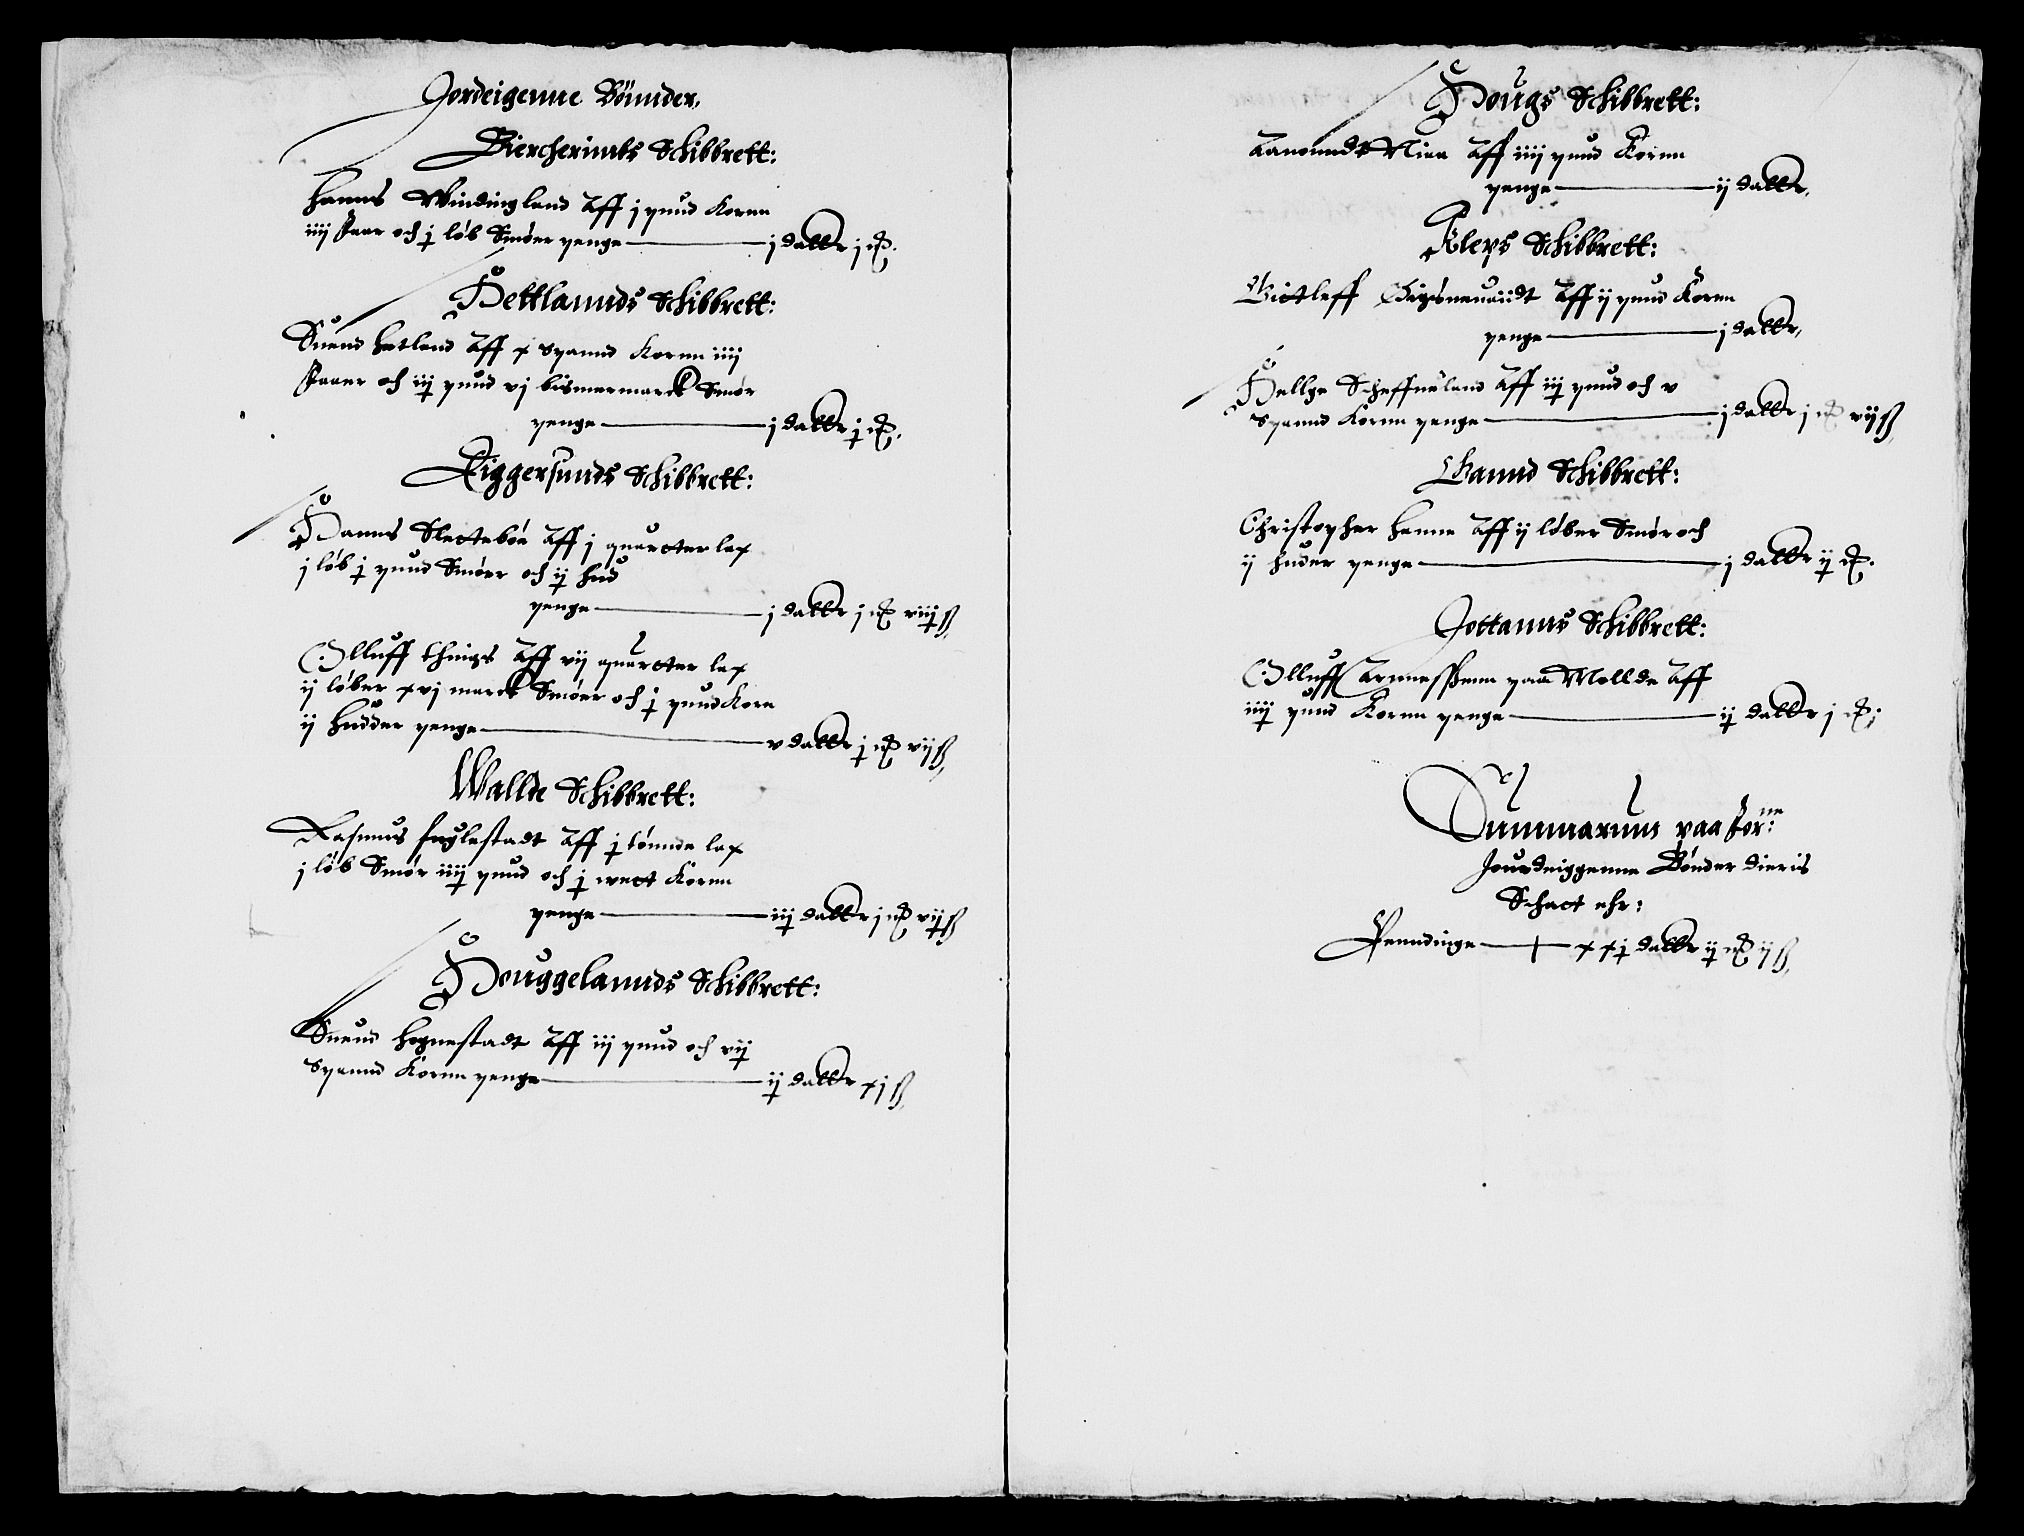 Jordeigenne Bönnder,
Biercherimbs Schibbrett:
Hanns Windingland Aff j pund Kornn
iiij faar och j løb Smøer penge — j dallr j
Hettlannds Schibbrett:
Suend Hetland Aff x spannd Kornn iiij
faaer och iij pund vj bismermarck Smør
penge — j dallr j
Eiggersunds Schibbrett:
Hanns Slettebøe Aff j quarter lax
j løb j pund Smøer och ij hud
penge — j dallr j viij ß
Olluff things Aff vij quarter lax
ij løber xvj marck Smøer och j pund Korn
ij Hudder penge — v dallr j vij ß
Wallde Schibbrett:
Rasmus fuglestadt Aff j tønnde lax
j løb Smør iiij pund och j wect Kornn
penge — iij dallr j vij ß
Houggelannds Schibbrett:
Suend Hognestadt Aff iij pund och vij
spannd Kornn penge — ij dallr xj ß
Hougs Schibbrett:
Aanonnd Niaa Aff iiij pund Kornn
penge — ij dallr,
Kleps Schibbrett:
Aff ij pund Kornn
penge — j dallr,
Hellge Scheffueland Aff iij pund och v
spannd Kornn penge — j dallr j vij ß
Gannd Schibbrett:
Christopher Hanne Aff ij løber Smør och
ij huder penge — j dallr ij
Jottanns Schibbrett:
Olluff Arnnessenn paa Mollde Aff
iiij pund Kornn penge — ij dallr j
Summarum paa for:ne
Jourdeiggenne Bønder dieris
Schact ehr:
Penndinge — xxj dallr ij ij ß